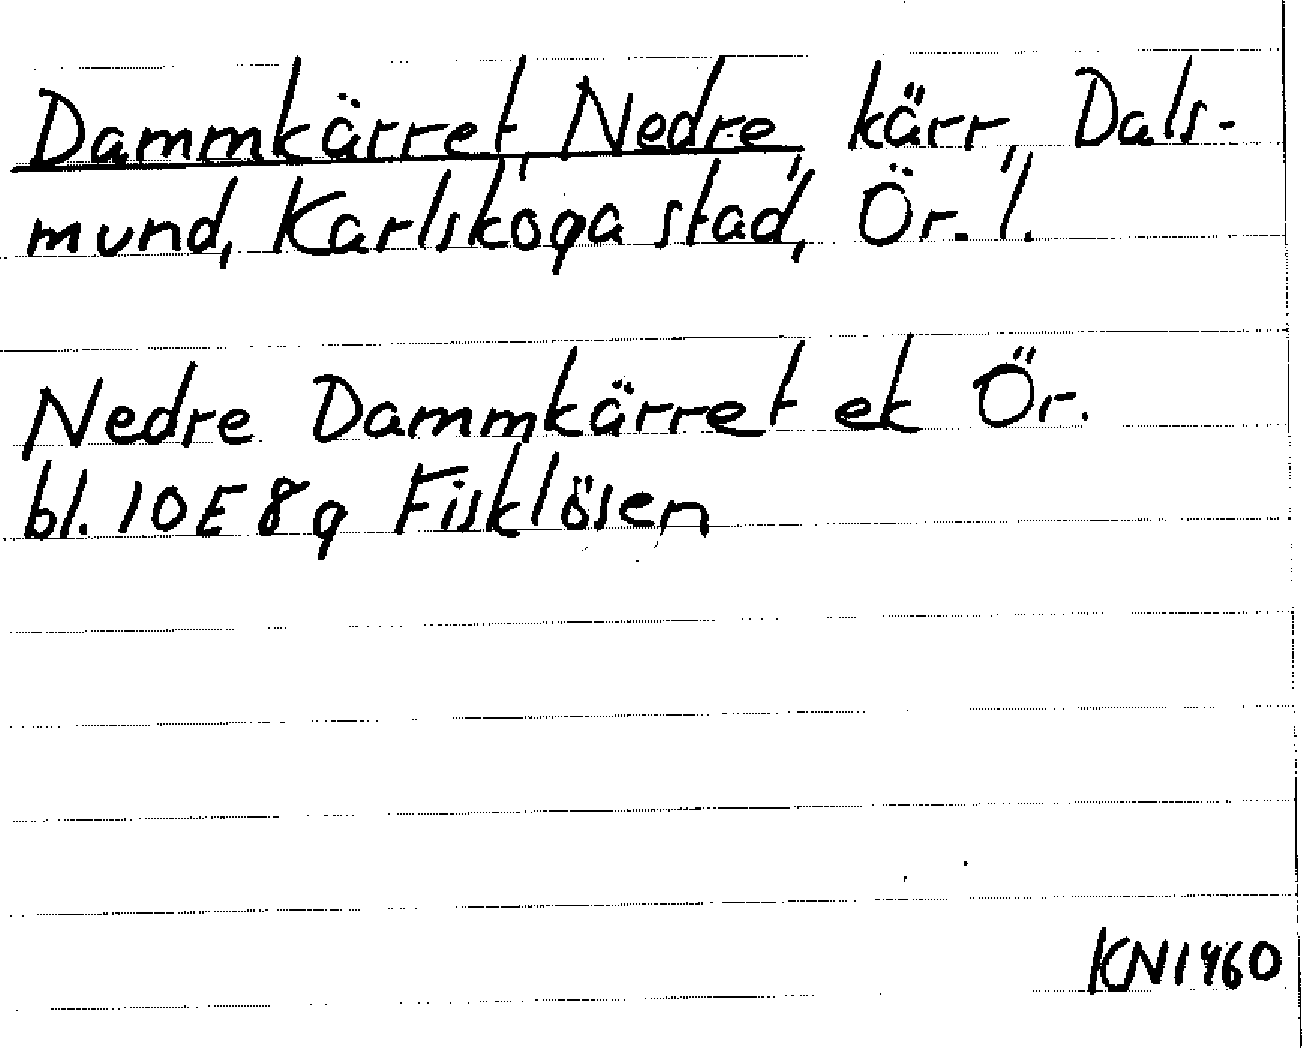 Dammkärret, Nedre, kärr, Dals-
mund, Karlskoga stad, Ör. l.
Nedre Dammkärret ek Ör.
bl. 10E 8g Fisklösen
KN1960